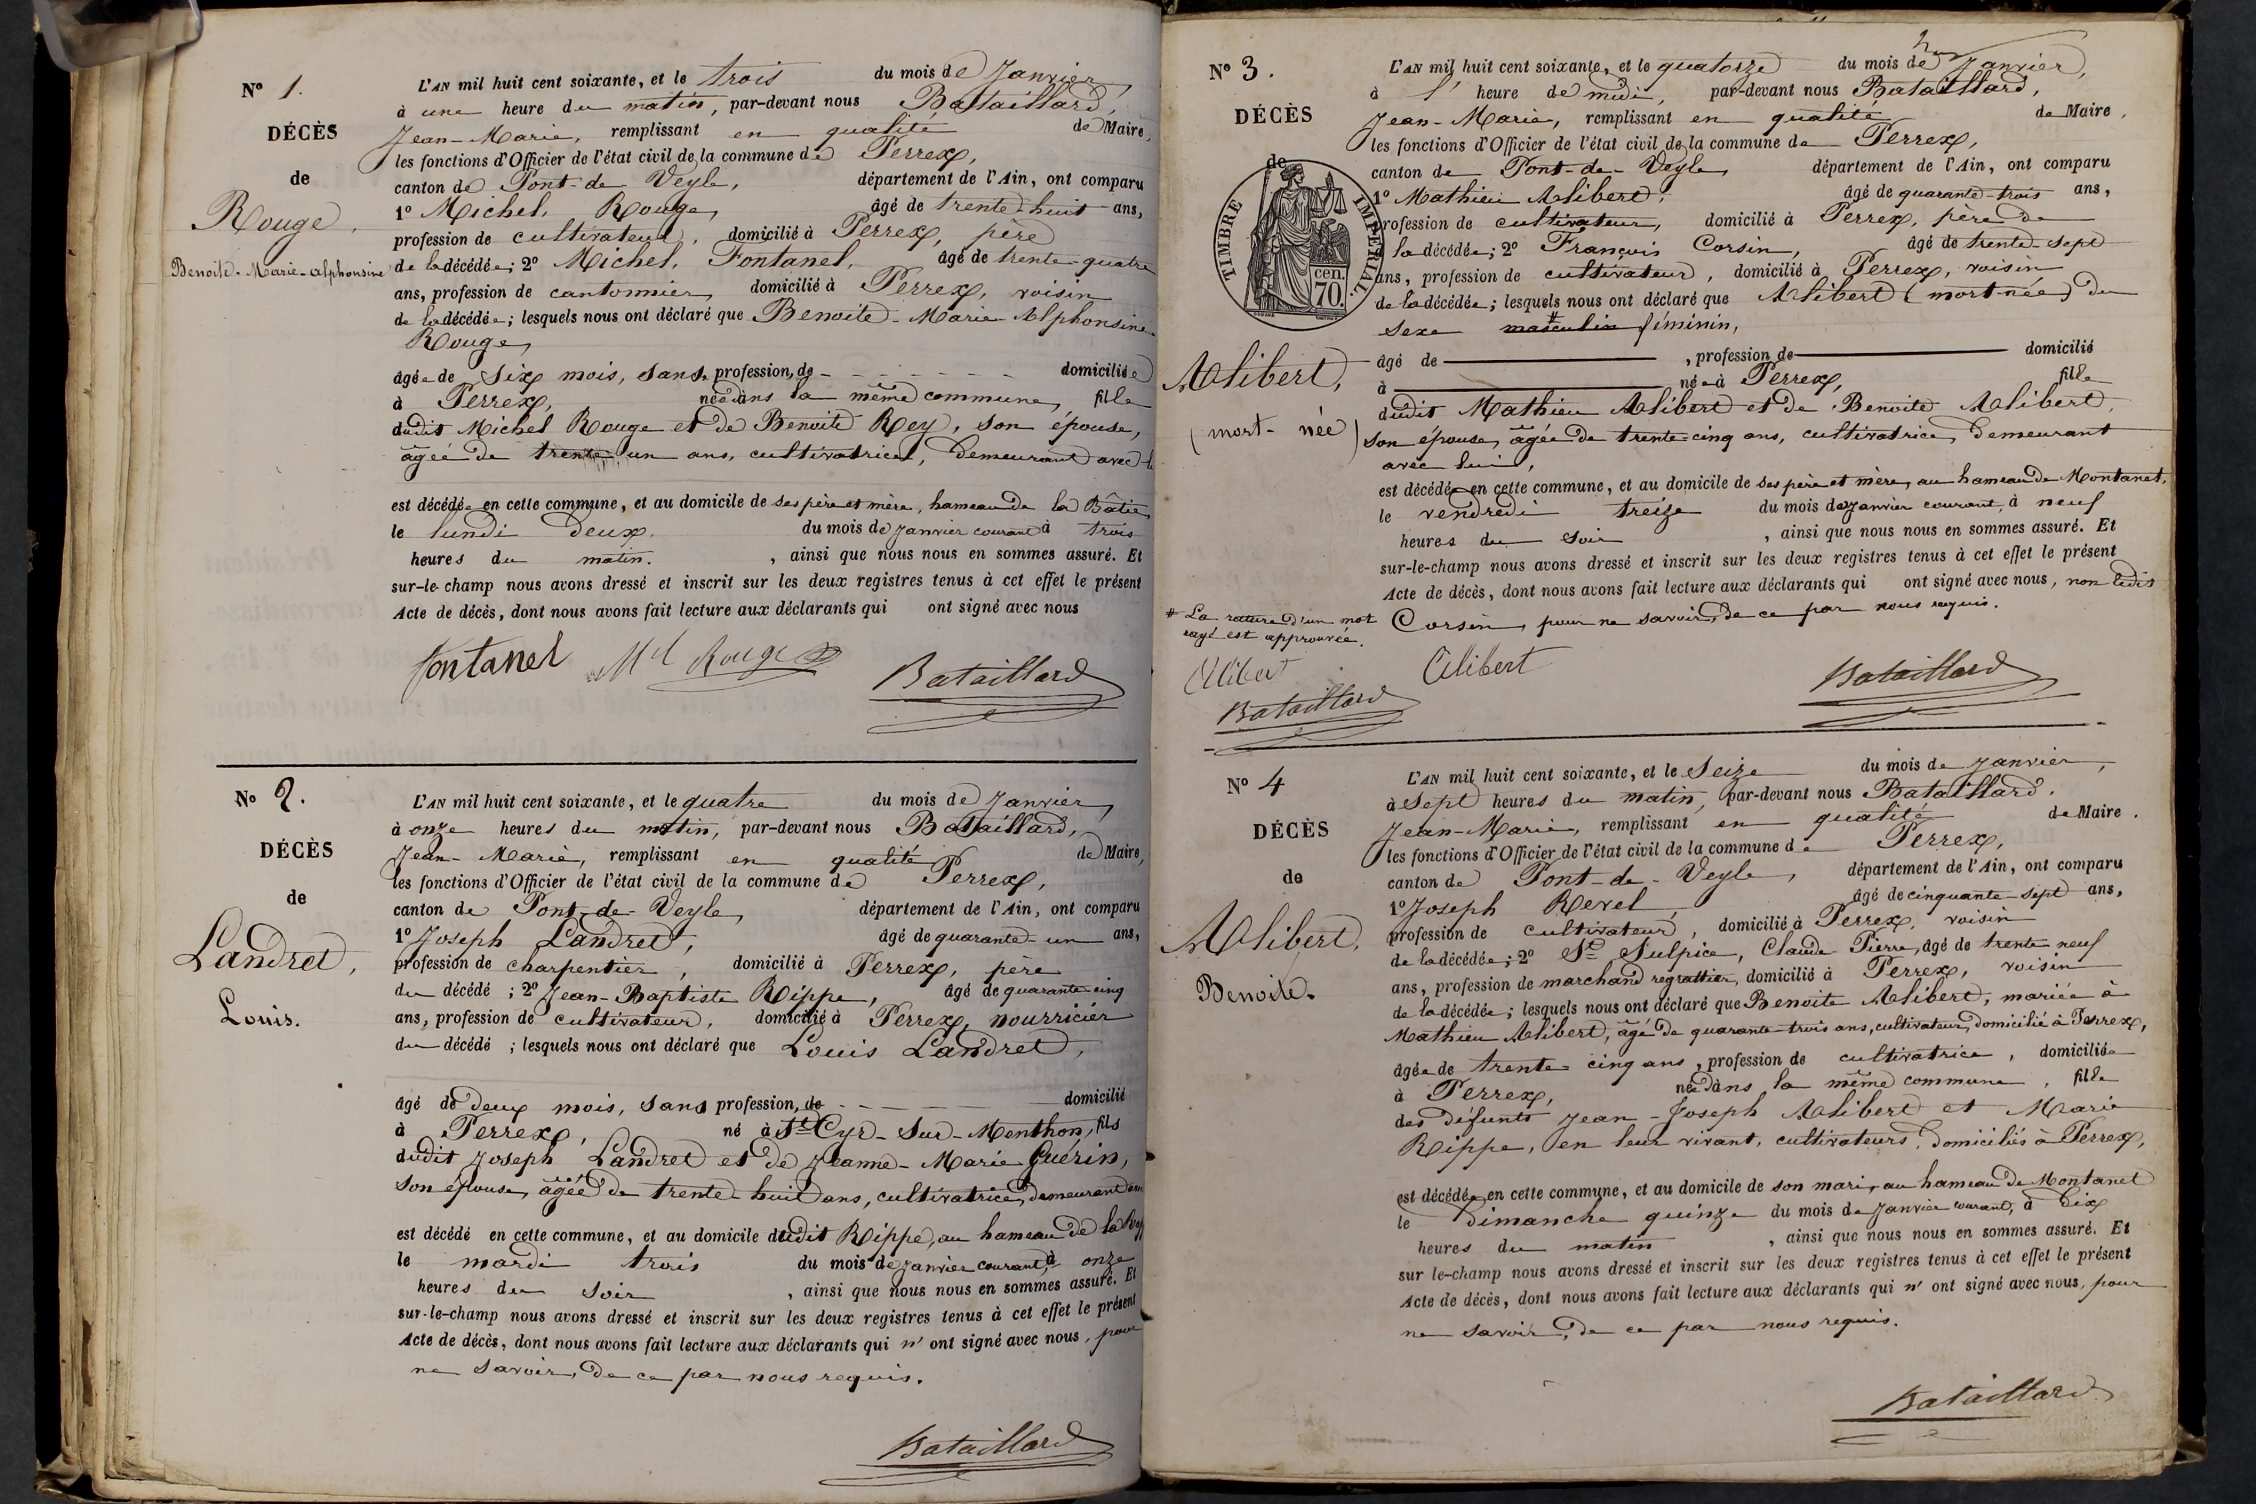 N° 1.
DÉCÈS
de
Rouge,
Benoite-Marie-Alphonsine
L'AN mil huit cent soixante, et le trois du mois de Janvier,
à une heure du matin, par-devant nous Bataillard,
Jean-Marie, remplissant en qualité de Maire,
les fonctions d'Officier de l'état civil de la commune de Perrex,
canton de Pont-de-Veyle, département de l'Ain, ont comparu
1° Michel Rouge, âgé de trente-huit ans,
profession de cultivateur, domicilié à Perrex, père
de la décédée; 2° Michel Fontanel, âgé de trente-quatre
ans, profession de cantonnier, domicilié à Perrex, voisin
de la décédée; lesquels nous ont déclaré que Benoite-Marie Alphonsine
Rouge,
âgée de six mois, sans profession, de domiciliée
à Perrex, née dans la même commune, fille
dudit Michel Rouge et de Benoite Rey, son épouse,
âgée de trente un ans, cultivatrice, demeurant avec
est décédée en cette commune, et au domicile de ses père et mère, hameau de la Bâtie,
le lundi deux du mois de Janvier courant à trois
heures du matin, ainsi que nous nous en sommes assuré. Et
sur-le-champ nous avons dressé et inscrit sur les deux registres tenus à cet effet le présent
Acte de décès, dont nous avons fait lecture aux déclarants qui ont signé avec nous
fontanel Ml Rouge Bataillard
N° 2.
DÉCÈS
de
Landret,
Louis.
L'AN mil huit cent soixante, et le quatre du mois de Janvier,
à onze heures du matin, par-devant nous Bataillard,
Jean-Marie, remplissant en qualité de Maire,
les fonctions d'Officier de l'état civil de la commune de Perrex,
canton de Pont-de-Veyle, département de l'Ain, ont comparu
1° Joseph Landret, âgé de quarante-un ans,
profession de charpentier, domicilié à Perrex, père
du décédé; 2° Jean-Baptiste Rippe, âgé de quarante-cinq
ans, profession de cultivateur, domicilié à Perrex, nourricier
du décédé; lesquels nous ont déclaré que Louis Landret,
âgé de deux mois, sans profession, de domicilié
à Perrex, né à St Cyr-sur-Menthon, fils
dudit Joseph Landret et de Jeanne-Marie Guérin,
son épouse, âgée de trente-huit ans, cultivatrice, demeurant
est décédé en cette commune, et au domicile dudit Rippe, au hameau de la
le mardi trois du mois de Janvier courant, à onze
heures du soir, ainsi que nous nous en sommes assuré. Et
sur-le-champ nous avons dressé et inscrit sur les deux registres tenus à cet effet le présent
Acte de décès, dont nous avons fait lecture aux déclarants qui n'ont signé avec nous, pour
ne savoir, de ce par nous requis.
Bataillard
N° 3.
DÉCÈS
de
TIMBRE IMPÉRIAL.
cen.
70.
Alibert,
(mort-née)
L'AN mil huit cent soixante, et le quatorze du mois de Janvier,
à l'heure de midi, par-devant nous Bataillard,
Jean-Marie, remplissant en qualité de Maire,
les fonctions d'Officier de l'état civil de la commune de Perrex,
canton de Pont-de-Veyle, département de l'Ain, ont comparu
1° Mathieu Alibert, âgé de quarante-trois ans,
profession de cultivateur, domicilié à Perrex, père de
la décédée; 2° François Corsin, âgé de trente-sept
ans, profession de cultivateur, domicilié à Perrex, voisin
de la décédée; lesquels nous ont déclaré que Alibert (mort-née) du
sexe masculin féminin,
âgé de , profession de domicilié
à née à Perrex, fille
dudit Mathieu Alibert et de Benoite Alibert,
son épouse, âgée de trente-cinq ans, cultivatrice, demeurant
avec lui,
est décédée en cette commune, et au domicile de ses père et mère, au hameau de Montanet,
le vendredi treize du mois de Janvier courant, à neuf
heures du soir, ainsi que nous nous en sommes assuré. Et
sur-le-champ nous avons dressé et inscrit sur les deux registres tenus à cet effet le présent
Acte de décès, dont nous avons fait lecture aux déclarants qui ont signé avec nous, non ledit
Corsin, pour ne savoir, de ce par nous requis.
# La rature d'un mot
rayé est approuvée.
Alibert Alibert Bataillard
Bataillard
N° 4
DÉCÈS
de
Alibert,
Benoite.
L'AN mil huit cent soixante, et le seize du mois de Janvier,
à sept heures du matin, par-devant nous Bataillard,
Jean-Marie, remplissant en qualité de Maire.
les fonctions d'Officier de l'état civil de la commune de Perrex,
canton de Pont-de-Veyle, département de l'Ain, ont comparu
1° Joseph Revel, âgé de cinquante-sept ans,
profession de cultivateur, domicilié à Perrex, voisin
de la décédée; 2° St Sulpice, Claude Pierre, âgé de trente neuf
ans, profession de marchand regrattier, domicilié à Perrex, voisin
de la décédée; lesquels nous ont déclaré que Benoite Alibert, mariée à
Mathieu Alibert, âgé de quarante-trois ans, cultivateur, domicilié à Perrex,
âgée de trente-cinq ans, profession de cultivatrice, domiciliée
à Perrex, née dans la même commune, fille
des défunts Jean-Joseph Alibert et Marie
Rippe, en leur vivant, cultivateurs, domiciliés à Perrex,
est décédée en cette commune, et au domicile de son mari, au hameau de Montanet
le dimanche quinze du mois de Janvier courant, à dix
heures du matin, ainsi que nous nous en sommes assuré. Et
sur le-champ nous avons dressé et inscrit sur les deux registres tenus à cet effet le présent
Acte de décès, dont nous avons fait lecture aux déclarants qui n'ont signé avec nous, pour
ne savoir, de ce par nous requis.
Bataillard